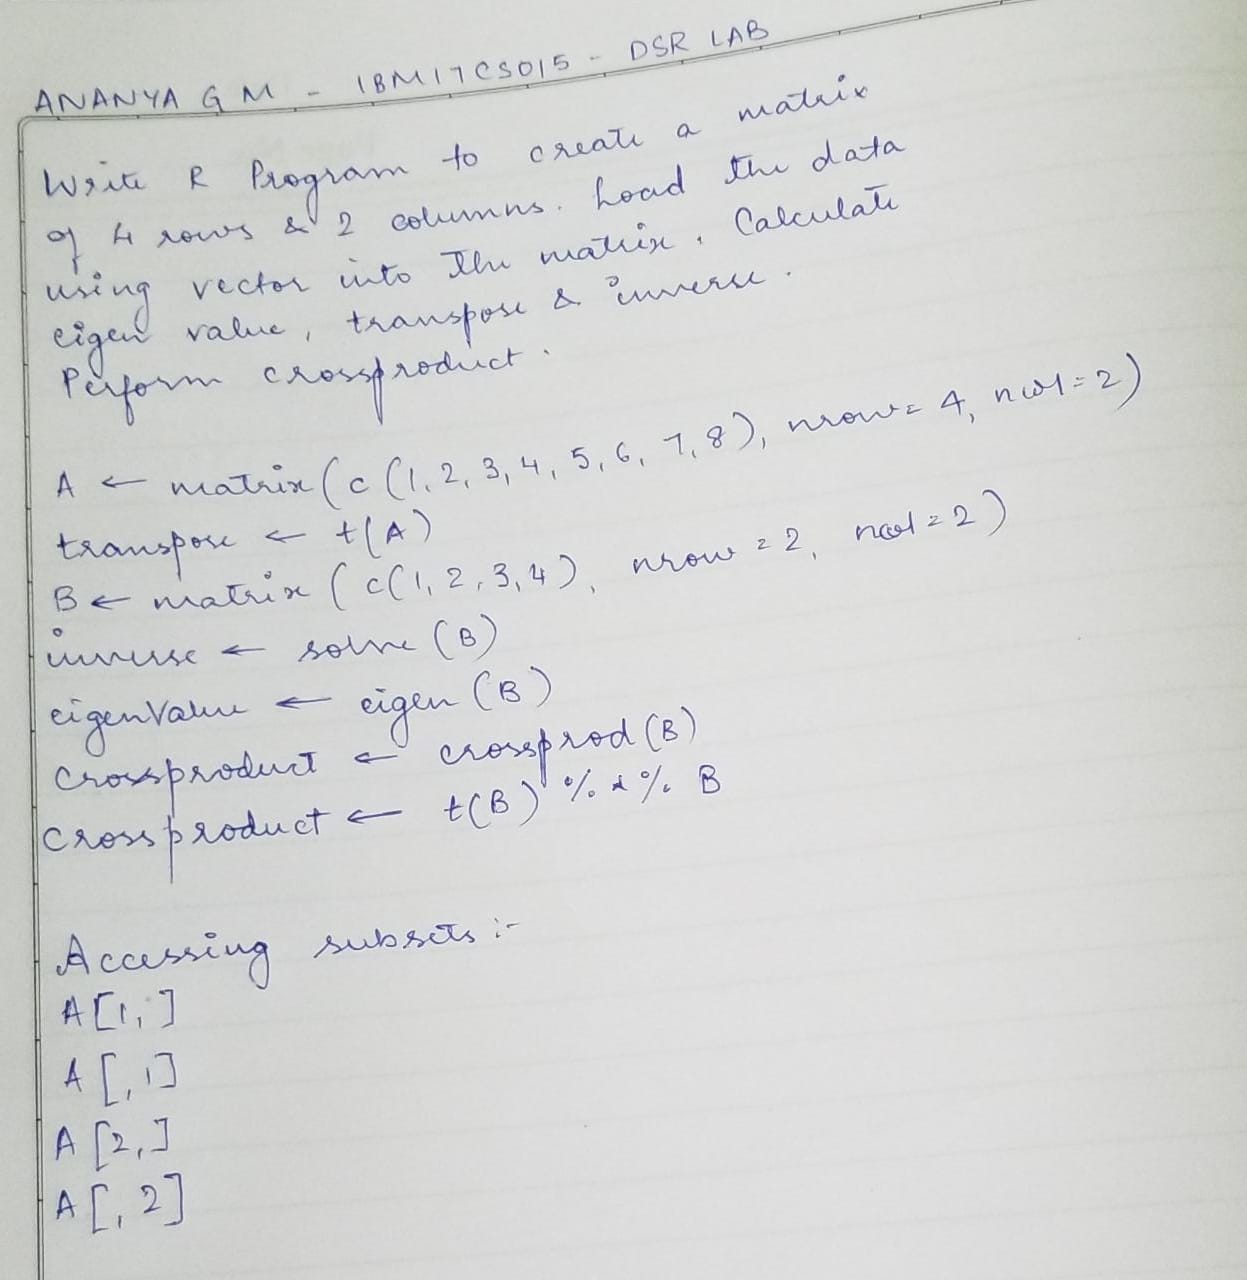 ANANYA G M - 1BM17CS015 - DSR LAB
Write R Program to create a matrix
of 4 rows & 2 columns. Load the data
using vector into the matrix. Calculate
eigen value, transpose & inverse.
Perform crossproduct.
A ← matrix (c (1, 2, 3, 4, 5, 6, 7, 8), nrow = 4, ncol = 2)
transpose ← t(A)
B ← matrix (c(1, 2, 3, 4), nrow = 2, ncol = 2)
inverse ← solve (B)
eigenValue ← eigen (B)
crossproduct ← crossprod (B)
crossproduct ← t(B) %*% B
Accessing subsets :-
A[1,]
A[,1]
A[2,]
A[,2]